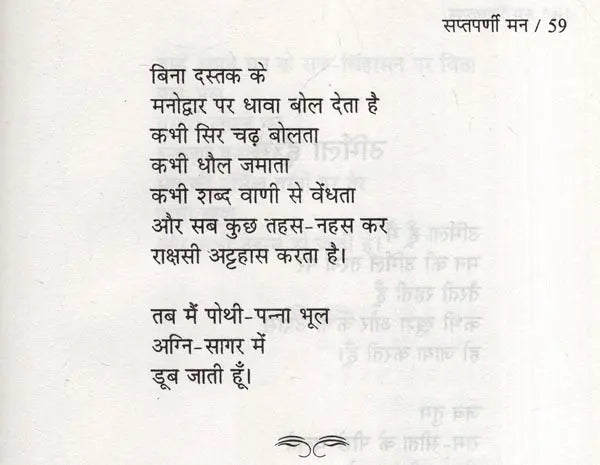 सप्तपर्णी मन / 59
बिना दस्तक के
मनोद्वार पर धावा बोल देता है
कभी सिर चढ़ बोलता
कभी धौल जमाता
कभी शब्द वाणी से वेंधता
और सब कुछ तहस-नहस कर
राक्षसी अट्टहास करता है।
तब मैं पोथी-पन्ना भूल
अग्नि-सागर में
डूब जाती हूँ।